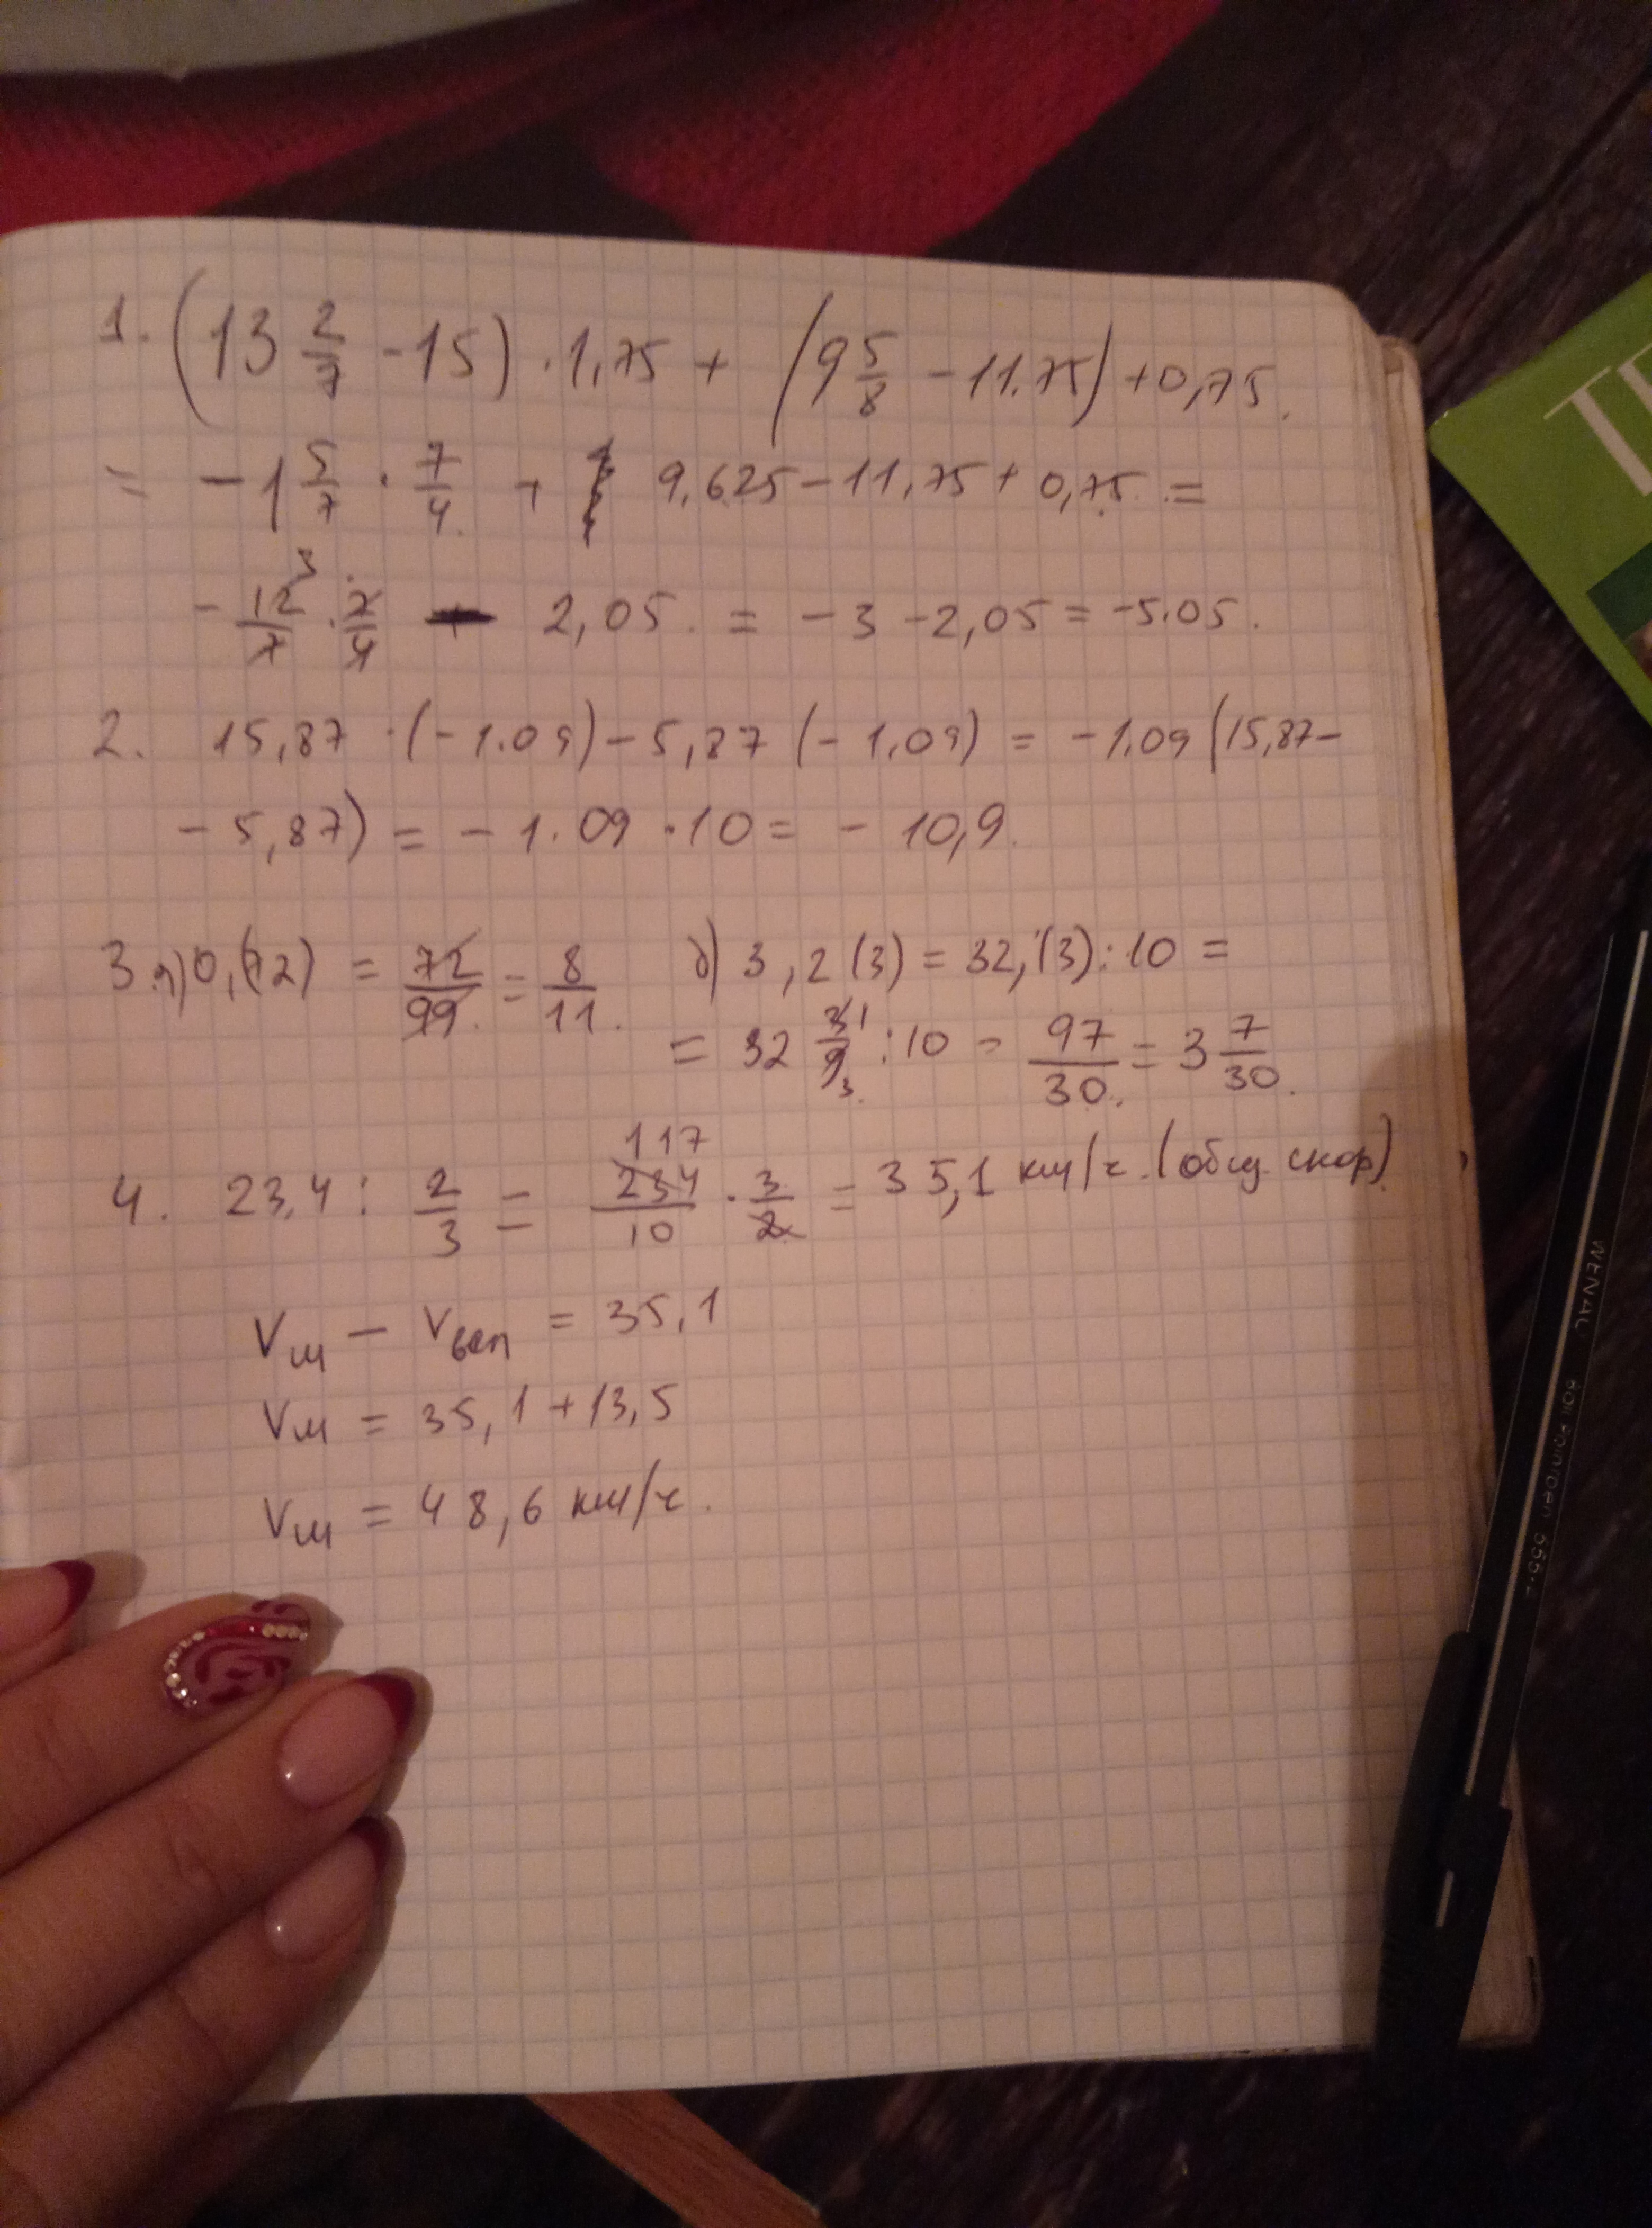 1. (13 2/7 - 15) · 1,75 + (9 5/8 - 11.75) + 0,75.
= -1 5/7 · 7/4 + 9,625 - 11,75 + 0,75 =
- 12/7 3 · 7/4 - 2,05. = -3 - 2,05 = -5.05.
2. 15,87 · (-1.09) - 5,87 (-1,09) = -1.09 (15,87 -
- 5,87) = -1.09 · 10 = - 10,9.
3. а) 0,(72) = 72/99 = 8/11. б) 3,2(3) = 32,(3) : 10 =
= 32 3/9 1/3 : 10 = 97/30 = 3 7/30.
4. 23,4 : 2/3 = 234/10 117 · 3/2 = 35,1 км/ч. (общ. скор)
Vм - Vвел = 35,1
Vм = 35,1 + 13,5
Vм = 48,6 км/ч.